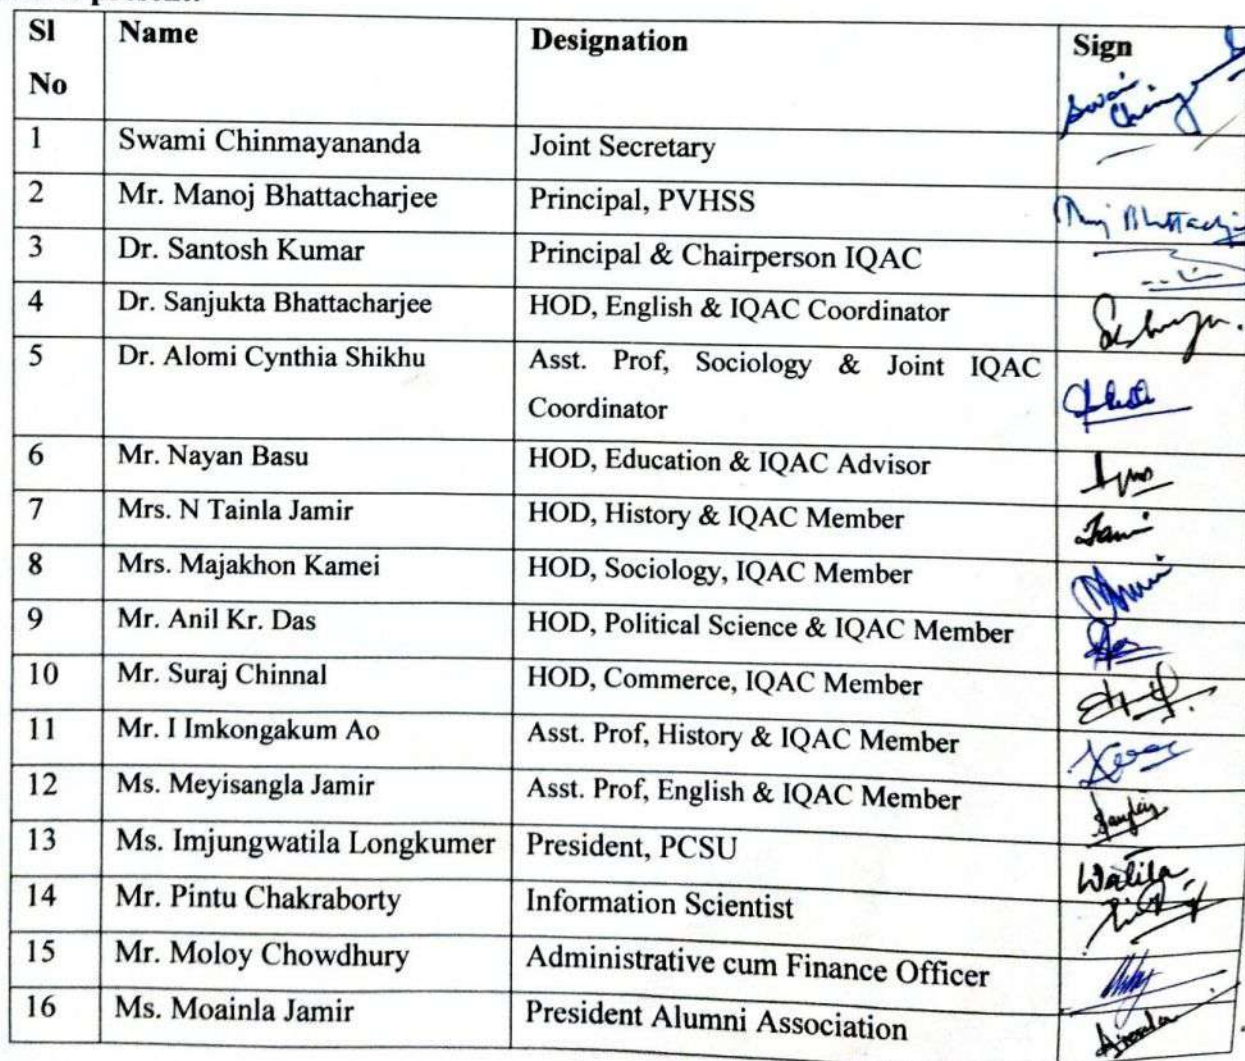 Sl No Name Designation Sign
1 Swami Chinmayananda Joint Secretary
2 Mr. Manoj Bhattacharjee Principal, PVHSS
3 Dr. Santosh Kumar Principal & Chairperson IQAC
4 Dr. Sanjukta Bhattacharjee HOD, English & IQAC Coordinator
5 Dr. Alomi Cynthia Shikhu Asst. Prof, Sociology & Joint IQAC
Coordinator
6 Mr. Nayan Basu HOD, Education & IQAC Advisor
7 Mrs. N Tainla Jamir HOD, History & IQAC Member
8 Mrs. Majakhon Kamei HOD, Sociology, IQAC Member
9 Mr. Anil Kr. Das HOD, Political Science & IQAC Member
10 Mr. Suraj Chinnal HOD, Commerce, IQAC Member
11 Mr. I Imkongakum Ao Asst. Prof, History & IQAC Member
12 Ms. Meyisangla Jamir Asst. Prof, English & IQAC Member
13 Ms. Imjungwatila Longkumer President, PCSU Watila
14 Mr. Pintu Chakraborty Information Scientist
15 Mr. Moloy Chowdhury Administrative cum Finance Officer
16 Ms. Moainla Jamir President Alumni Association